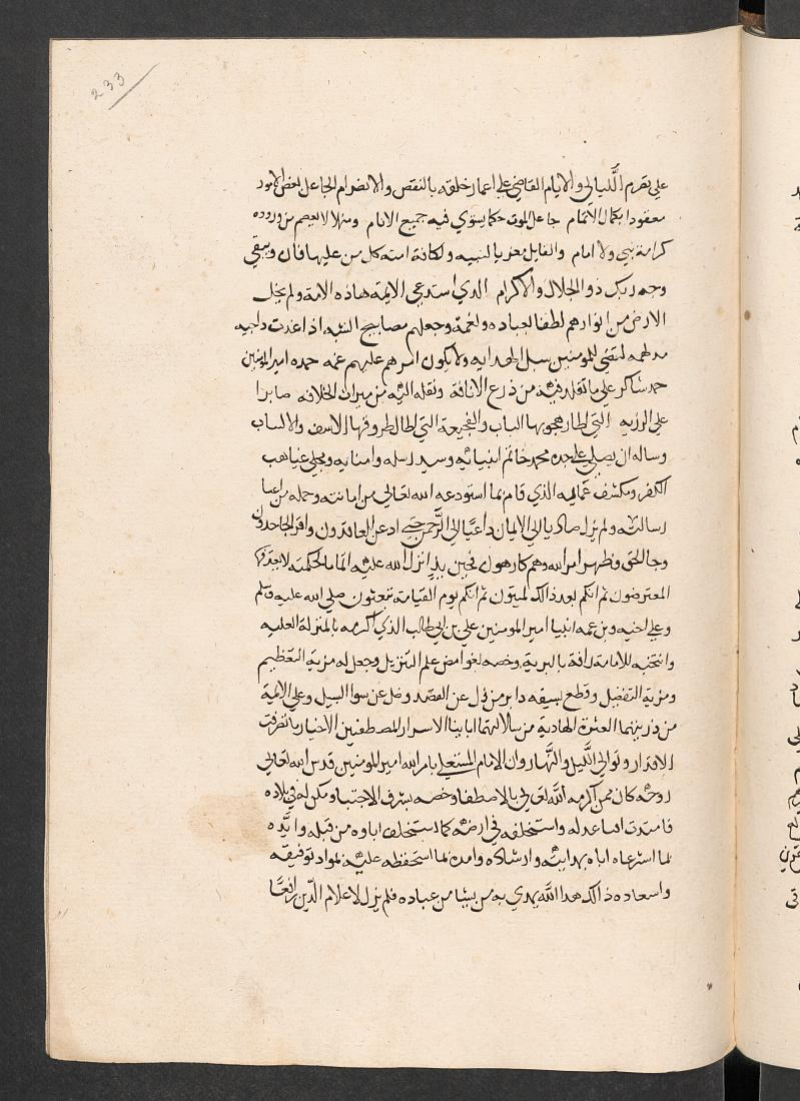 233
على تصرم اللَّيالى والايام القاضى على اعمار خلقه بالنقص والانصرام الجاعل لبعض الامور
معقودا بكمال الاتمام جاعل الموت حكما يسوي فيه جميع الانام ومنهلا لا يعصم من وروده
كرامة نبي ولا امام والقايل معزيا لنبيه ولكافة امته كل من عليها فان ويبقي
وجه ربك ذو الجلال والاكرام الذي استدعي الايمة هاذه الامة ولم يخل
الارض من انوارهم لطفا لعباده ونعمة وجعلهم مصابيح الشبه اذا غدت داجيه
مدلهمه لتضي للمومنين سبل الهدايه ولا يكون امرهم عليهم غمه حمده امير المومنين
حمد شاكر علي ما نقله فيه من درج الانافة ونقله اليه من ميراث الخلافه صابرا
على الرزيه التى اطار هجومها الباب والفجيعة التى اطال طروقها الاسف والاكتياب
وساله ان يصلى على جده محمد خاتم انبيائه وسيد رسله وامنايه ومجلى غياهب
الكفر ومكشف عمايه الذي قام بما استودعه الله تعالى من امانته وحمله من اعبا
رسالته ولم يزل هاديا الى الايمان داعيًا الى الرَّحمن حتي اذعن المعاندون واقر الجاحدون
وجا الحق وظهر امر الله وهم كارهون فحين يذٍ انزل الله عليه اتماما لحكمته لا يعترضها
المعترضون ثم انكم بعد ذالك لميتون ثم انكم يوم القيامة تبعثون صلي الله عليه وسلم
وعلى اخيه وبن عمه ابينا امير المومنين علي بن ابي طالب الذي اكرمه بالمنزلة العليه
وانتخبه للامامة رافة بالبرية وخصه بغوامض علم التنزيل وجعل له مزية التعظيم
ومزية التفضيل وقطع بسيفه دابر من زل عن القصد وضل عن سوا السبيل وعلي الايمة
من ذريتهما العترة الهادية من سلالتهما ابائنا الابرار المصطفين الاخيار ما تصرفت
الاقدار وتوالى اللَّيل والنَّهار وان الامام المستعلي بامر الله امير المومنين قدس الله تعالى
روحه كان ممن اكرمه اللّه تعالى بالاصطفا وخصه بشرف الاجتبا ومكن له في بلاده
فامتدت افيا عدله واستخلفه في ارضه كما استخلف اباوه من قبله وايَّده
بما استرعاه اياه بهدايته وارشاده وامده بما استحفظه عليه بمواد توفيقه
واسعاده ذالك هدا اللّه يهدي به من يشا من عباده فلم يزل لاعلام الدّين رافعًا